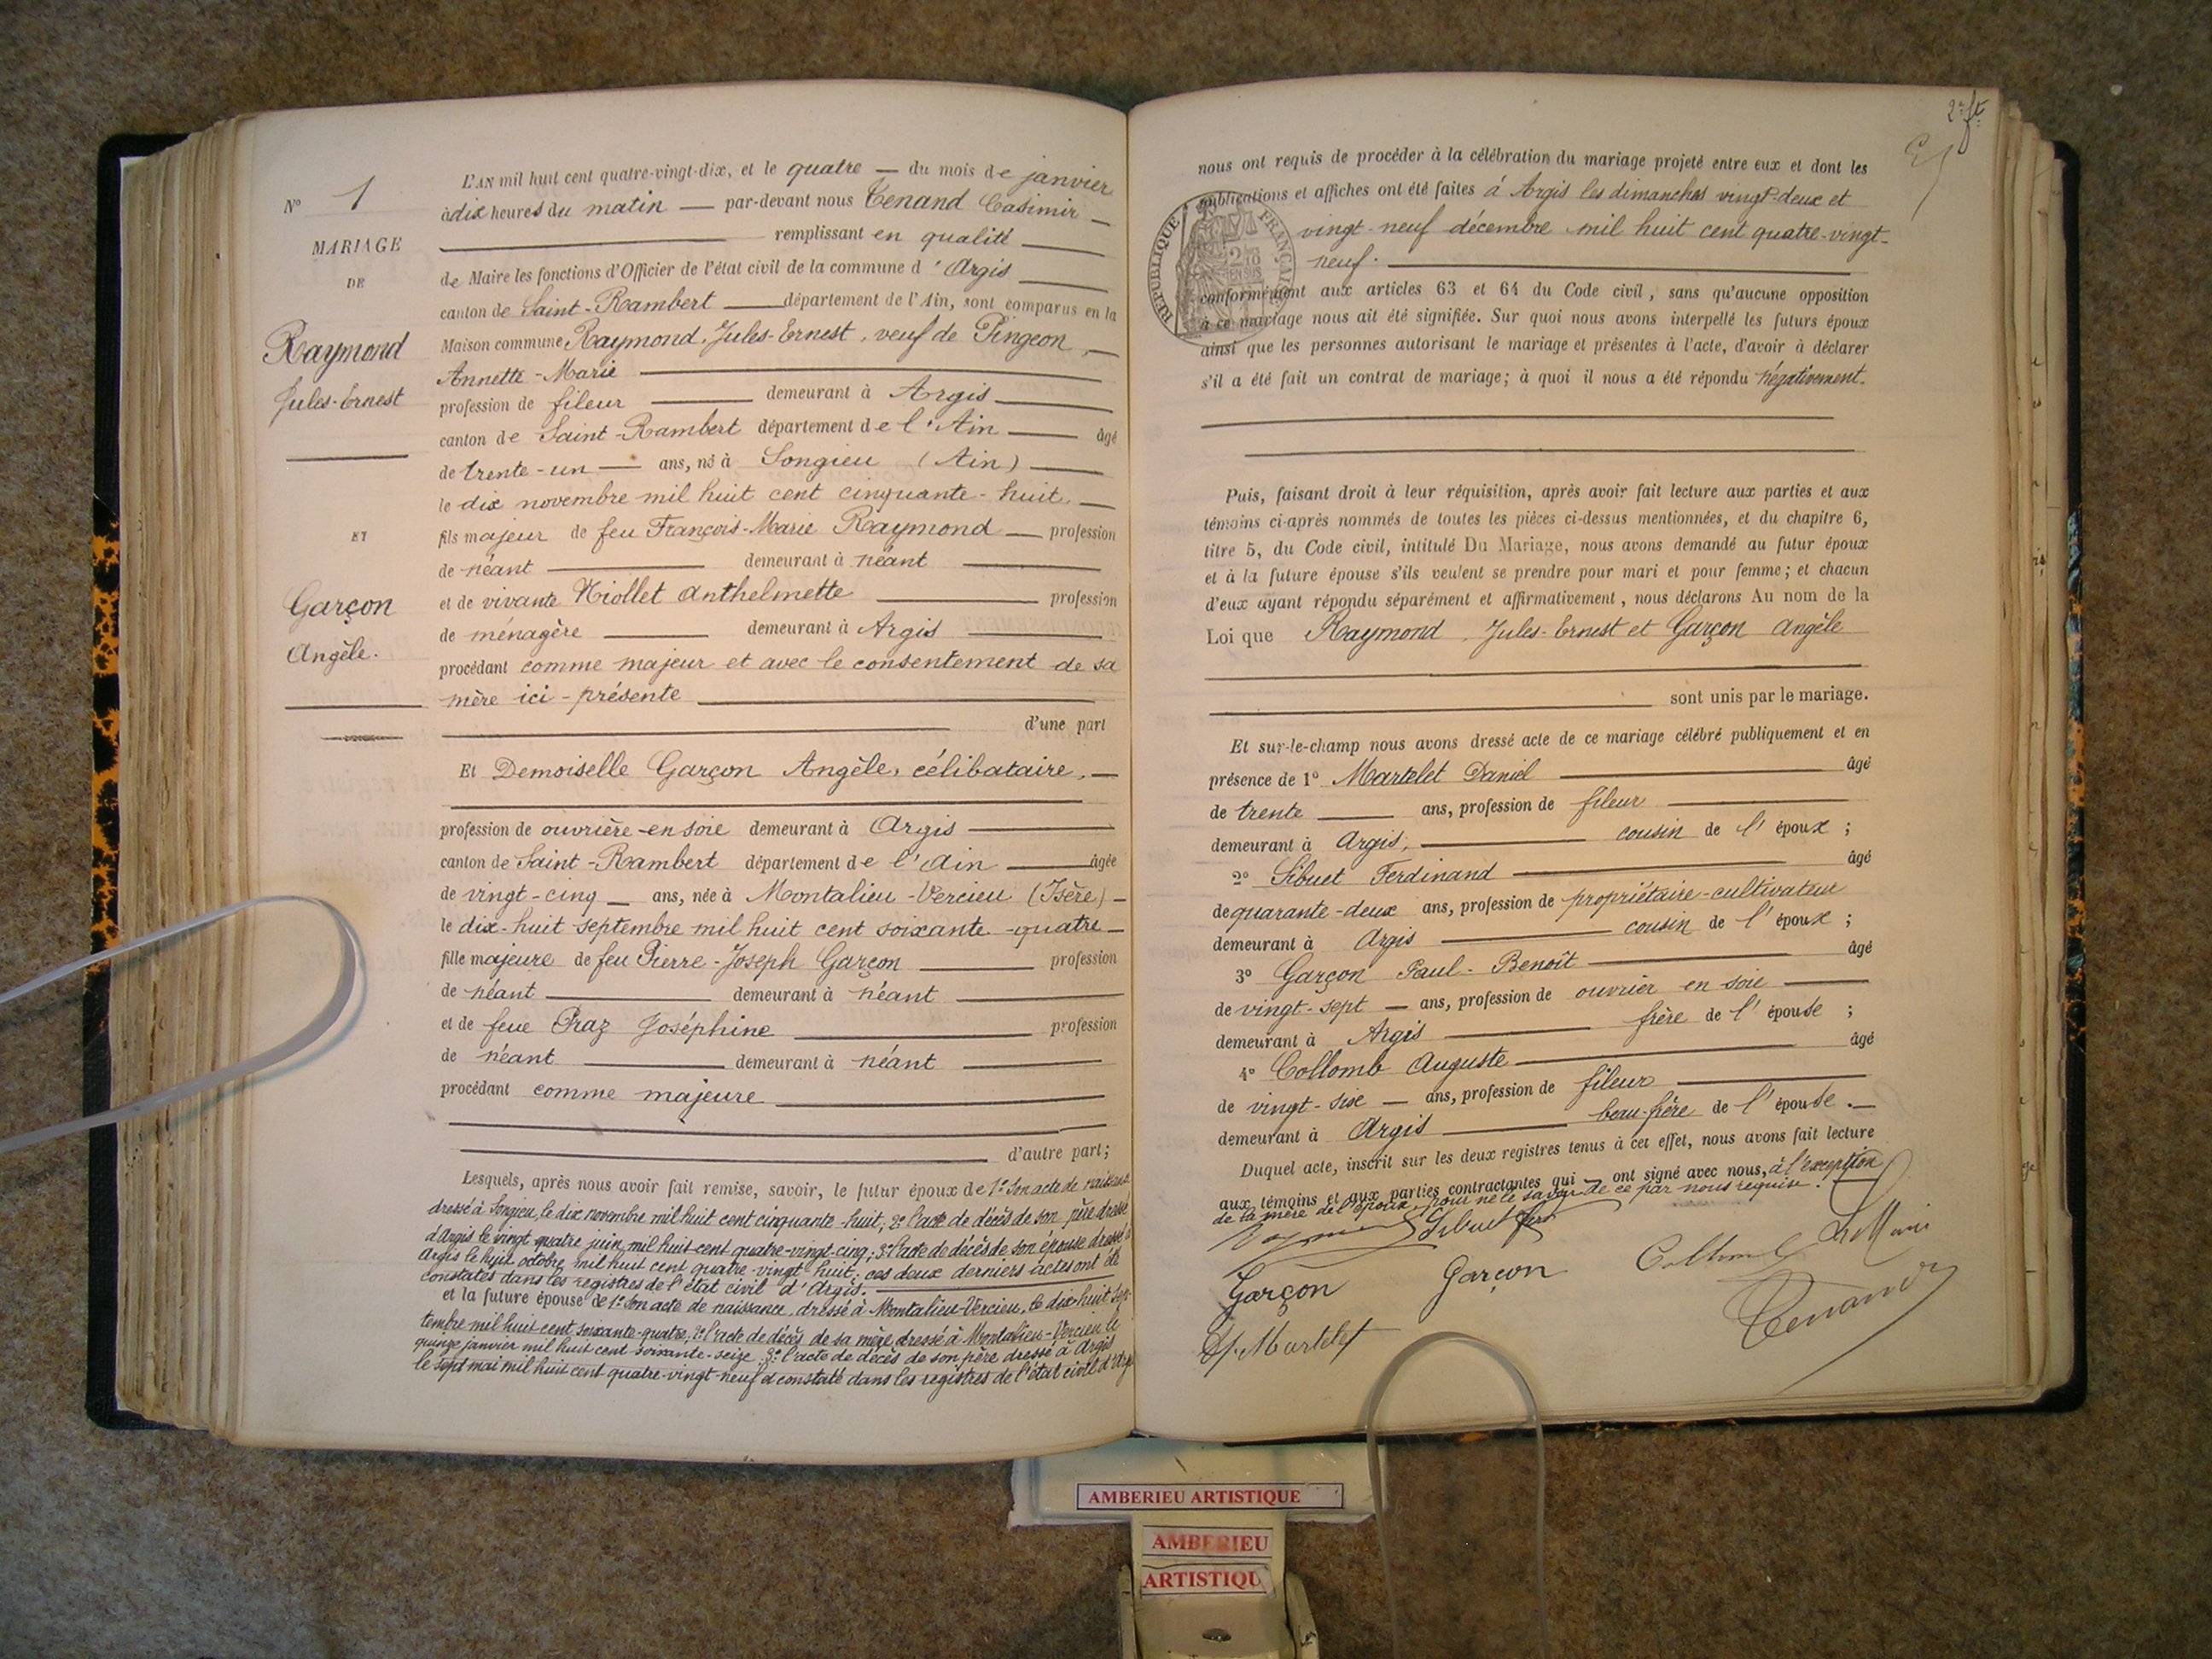 N° 1
MARIAGE
DE
Raymond
Jules-Ernest
ET
Garçon
Angèle.
L'AN mil huit cent quatre-vingt-dix, et le quatre — du mois de janvier
à dix heures du matin — par-devant nous Tenand Casimir —
remplissant en qualité
de Maire les fonctions d'Officier de l'état civil de la commune d'Argis
canton de Saint-Rambert — département de l'Ain, sont comparus en la
Maison commune Raymond, Jules-Ernest, veuf de Pingeon, —
Annette-Marie
profession de fileur — demeurant à Argis
canton de Saint-Rambert département de l'Ain — âgé
de trente-un — ans, né à Songieu (Ain) —
le dix novembre mil huit cent cinquante-huit, —
fils majeur de feu François-Marie Raymond — profession
de néant — demeurant à néant
et de vivante Niollet Anthelmette — profession
de ménagère — demeurant à Argis
procédant comme majeur et avec le consentement de sa
mère ici-présente
d'une part
Et Demoiselle Garçon Angèle, célibataire, —
profession de ouvrière-en-soie demeurant à Argis
canton de Saint-Rambert département de l'Ain — âgée
de vingt-cinq — ans, née à Montalieu-Vercieu (Isère) —
le dix-huit septembre mil huit cent soixante-quatre —
fille majeure de feu Pierre-Joseph Garçon — profession
de néant — demeurant à néant
et de feue Praz Joséphine — profession
de néant — demeurant à néant
procédant comme majeure
d'autre part;
Lesquels, après nous avoir fait remise, savoir, le futur époux de 1° Son acte de naissance
dressé à Songieu, le dix novembre mil huit cent cinquante-huit; 2° l'acte de décès de son père dressé
d'Argis le vingt quatre juin mil huit cent quatre-vingt-cinq; 3° l'acte de décès de son épouse dressé à
Argis le huit octobre mil huit cent quatre-vingt huit; ces deux derniers actes ont été
constatés dans les registres de l'état civil d'Argis.
et la future épouse de 1° Son acte de naissance, dressé à Montalieu-Vercieu, le dix-huit sep-
tembre mil huit cent soixante-quatre; 2° l'acte de décès de sa mère dressé à Montalieu-Vercieu le
quinze janvier mil huit cent soixante-seize; 3° l'acte de décès de son père dressé à Argis
le sept mai mil huit cent quatre-vingt-neuf et constaté dans les registres de l'état civil d'Argis
2e ft
nous ont requis de procéder à la célébration du mariage projeté entre eux et dont les
publications et affiches ont été faites à Argis les dimanches vingt-deux et
vingt-neuf décembre mil huit cent quatre-vingt-
neuf.
RÉPUBLIQUE FRANÇAISE
conformément aux articles 63 et 64 du Code civil, sans qu'aucune opposition
à ce mariage nous ait été signifiée. Sur quoi nous avons interpellé les futurs époux
ainsi que les personnes autorisant le mariage et présentes à l'acte, d'avoir à déclarer
s'il a été fait un contrat de mariage; à quoi il nous a été répondu négativement.
Puis, faisant droit à leur réquisition, après avoir fait lecture aux parties et aux
témoins ci-après nommés de toutes les pièces ci-dessus mentionnées, et du chapitre 6,
titre 5, du Code civil, intitulé Du Mariage, nous avons demandé au futur époux
et à la future épouse s'ils veulent se prendre pour mari et pour femme; et chacun
d'eux ayant répondu séparément et affirmativement, nous déclarons Au nom de la
Loi que Raymond, Jules-Ernest et Garçon Angèle
sont unis par le mariage.
Et sur-le-champ nous avons dressé acte de ce mariage célébré publiquement et en
présence de 1° Martelet Daniel — âgé
de trente — ans, profession de fileur
demeurant à Argis, — cousin de l'époux;
2° Sibuet Ferdinand — âgé
de quarante-deux ans, profession de propriétaire-cultivateur
demeurant à Argis — cousin de l'époux;
3° Garçon Paul-Benoît — âgé
de vingt-sept — ans, profession de ouvrier en soie
demeurant à Argis — frère de l'épouse;
4° Collomb Auguste — âgé
de vingt-six — ans, profession de fileur
demeurant à Argis — beau-frère de l'épouse. —
Duquel acte, inscrit sur les deux registres tenus à cet effet, nous avons fait lecture
aux témoins et aux parties contractantes qui — ont signé avec nous, à l'exception
de la mère de l'époux, pour ne le savoir de ce par nous requise.
Sibuet fer
Le Maire
Garçon
Garçon
Collomb
Tenand
D. Martelet
AMBERIEU ARTISTIQUE
AMBERIEU
ARTISTIQU